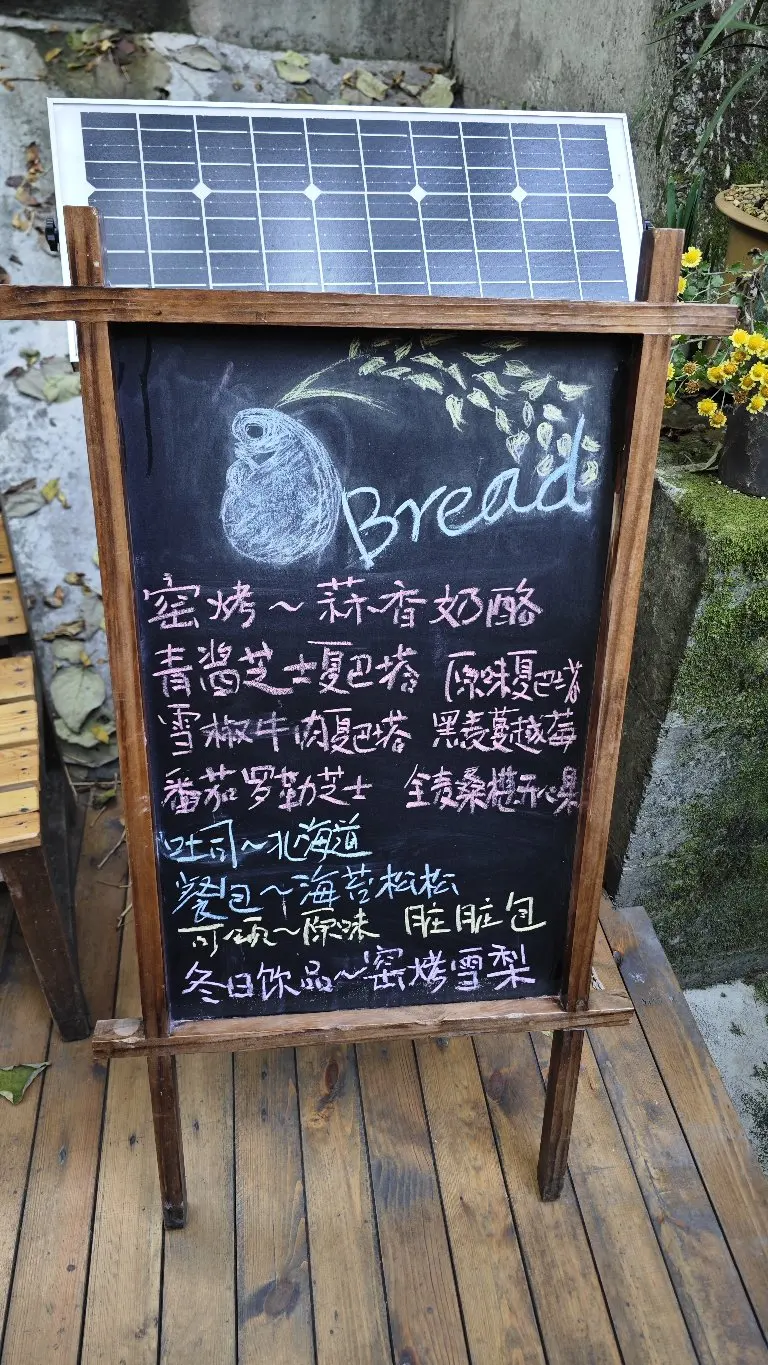 Bread
窑烤～蒜香奶酪
青酱芝士夏巴塔 原味夏巴塔
雪椒牛肉夏巴塔 黑麦蔓越莓
番茄罗勒芝士 全麦桑椹无心果
吐司～北海道
餐包～海苔松松
可颂～原味 脏脏包
冬日饮品～窑烤雪梨